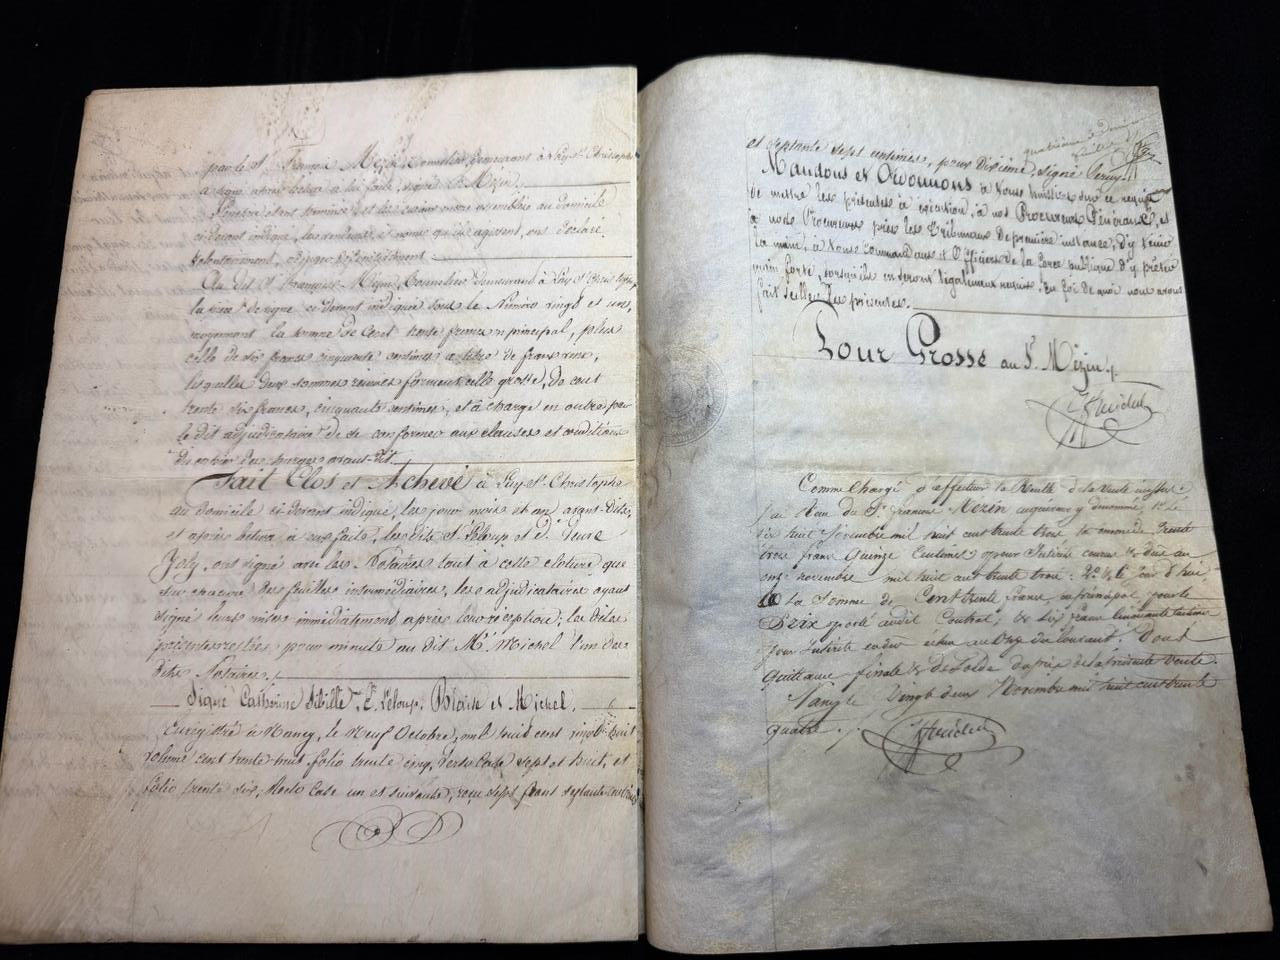 par le Sr. François Mézin, Tonnelier, demeurant à Lay St. Christophe
a signé après lecture à lui faite, signé F. Mézin.
ci devant indiqué, les vendeurs, et noms qu'ils agissent, ont déclaré
volontairement
Au dit Sr. François Mézin, Tonnelier demeurant à Lay St. Christophe,
la pièce de vigne ci devant indiquée sous le Numéro vingt et un,
moyennant la somme de Cent trente francs en principal, plus
celle de six francs cinquante centimes à titre de francs vins,
lesquelles deux sommes réunies forment celle grosse, de cent
trente six francs, cinquante centimes, et à charge en outre par
le dit adjudicataire de se conformer aux clauses et conditions
du cahier des charges avant-dit.
Fait Clos et Achevé à Lay St. Christophe
au domicile ci-devant indiqué, les jour mois et an avant-dits,
et après lecture à eux faite, les dits Sr. Leloup et De. Veuve
Joly, ont signé avec les Notaires tant à cette cloture que
sur chacune des feuilles intermédiaires, les adjudicataires ayant
signé leurs mises immédiatement après leur réception; les dites
présentes restées pour minute au dit Me. Michel l'un des
dits Notaires.
Signé Catherine Sibille, F. Leloup, Blaise et Michel.
Enregistré à Nancy, le Neuf Octobre, mil huit cent vingt huit
volume cent trente trois folio trente cinq, verso Case sept et huit, et
folio trente six, Recto Case un et suivante, reçu sept francs septante centimes
et septante sept centimes, pour Dixième, signé
Mandons et Ordonnons à tous huissiers sur ce requis
de mettre les présentes à exécution, à nos Procureurs Généraux, et
à nos Procureurs près les Tribunaux de première instance, d'y tenir
la main, à tous commandans et Officiers de la force publique d'y prêter
main forte, lorsqu'ils en seront légalement requis. En foi de quoi nous avons
fait sceller les présentes.
Pour Grosse au Sr. Mézin.
Comme Chargé d'effectuer la
J'ai Reçu du Sr. François Mézin acquéreur y dénommé, 1° Le
dix huit Novembre mil huit cent trente trois la somme de Trente
trois francs Quinze Centimes pour Intérêts courus & dûs au
onze novembre mil huit cent trente trois: 2° & Ce jour d'hui
La Somme de Cent trente francs, en principal pour le
Prix porté audit Contrat; & six francs Cinquante Centimes
pour Intérêts en dus échus au Onze du Courant. Dont
Quittance finale & de Solde du prix de la présente Vente.
Nancy le Vingt deux Novembre mil huit cent trente
quatre.